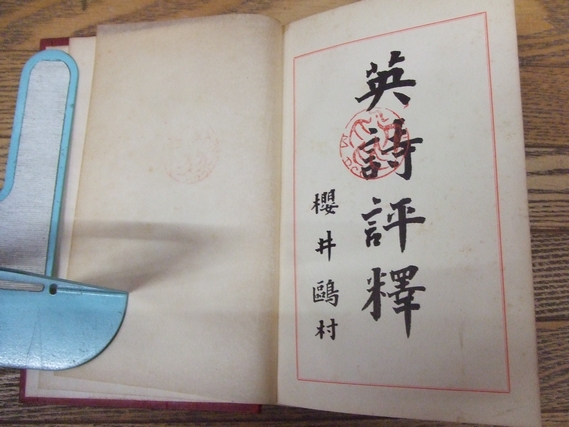 英詩評釋
櫻井鷗村